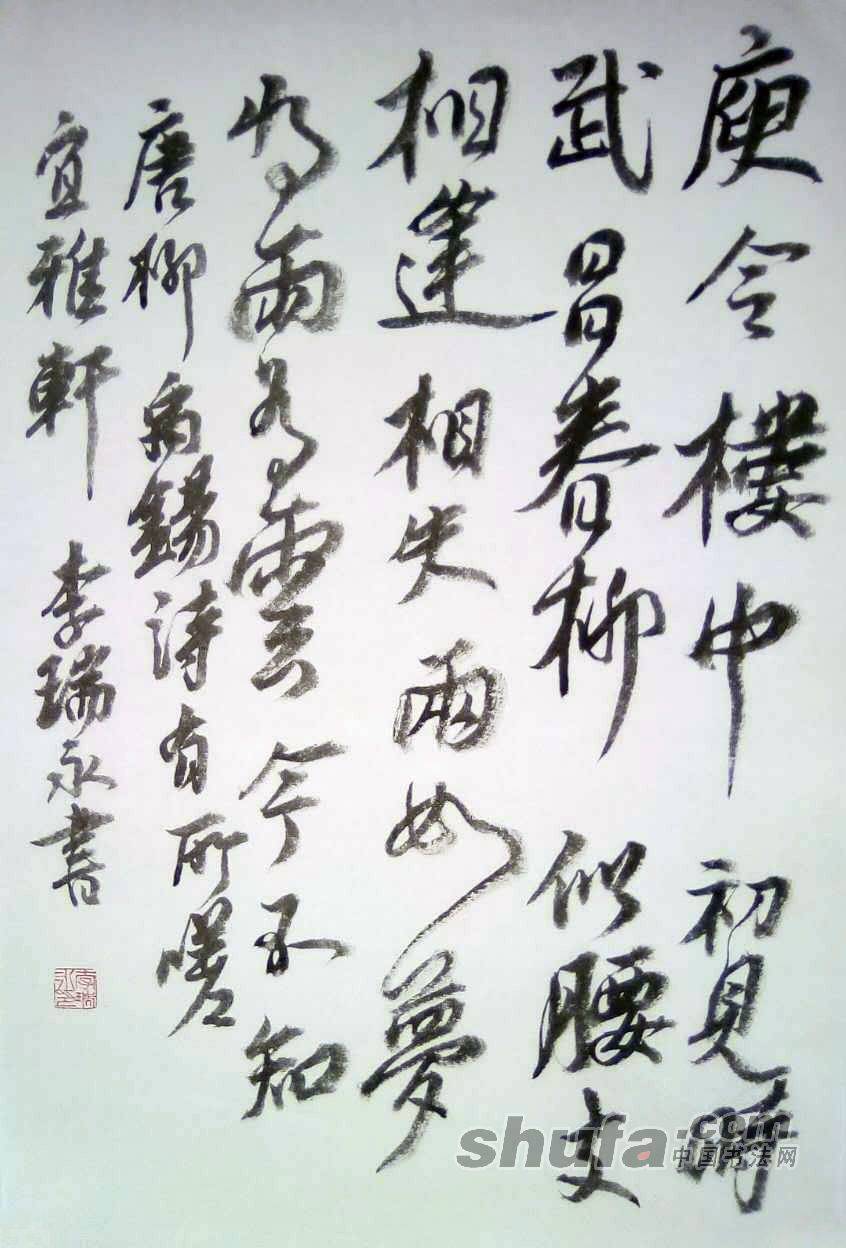 庾令樓中初見時
武昌春柳似腰支
相逢相失兩如夢
為雨為雲今不知
唐柳禹錫詩有所嗟
宜雅軒 李瑞永書
shufa.com
中国书法网